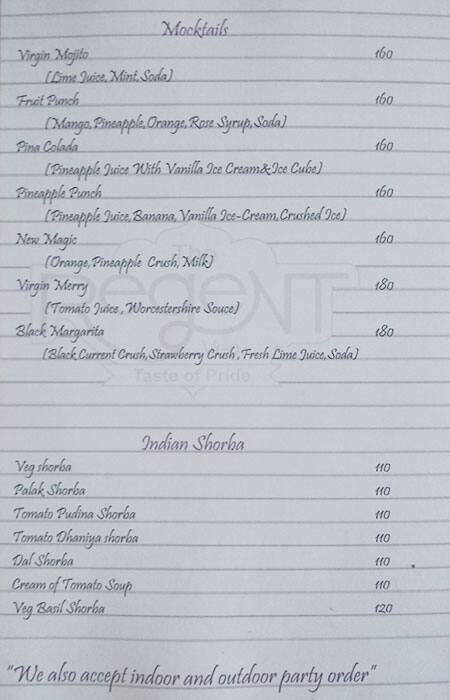 Mocktails
Virgin Mojito 160
(Lime Juice, Mint, Soda)
Fruit Punch 160
(Mango, Pineapple, Orange, Rose Syrup, Soda)
Pina Colada 160
(Pineapple Juice With Vanilla Ice Cream & Ice Cube)
Pineapple Punch 160
(Pineapple Juice, Banana, Vanilla Ice-Cream, Crushed Ice)
New Magic 160
The
(Orange, Pineapple Crush, Milk)
Regent
Virgin Merry 180
(Tomato Juice, Worcestershire Souce)
Black Margarita 180
(Black Current Crush, Strawberry Crush, Fresh Lime Juice, Soda)
Taste of Pride
Indian Shorba
Veg shorba 110
Palak Shorba 110
Tomato Pudina Shorba 110
Tomato Dhaniya shorba 110
Dal Shorba 110
Cream of Tomato Soup 110
Veg Basil Shorba 120
"We also accept indoor and outdoor party order"